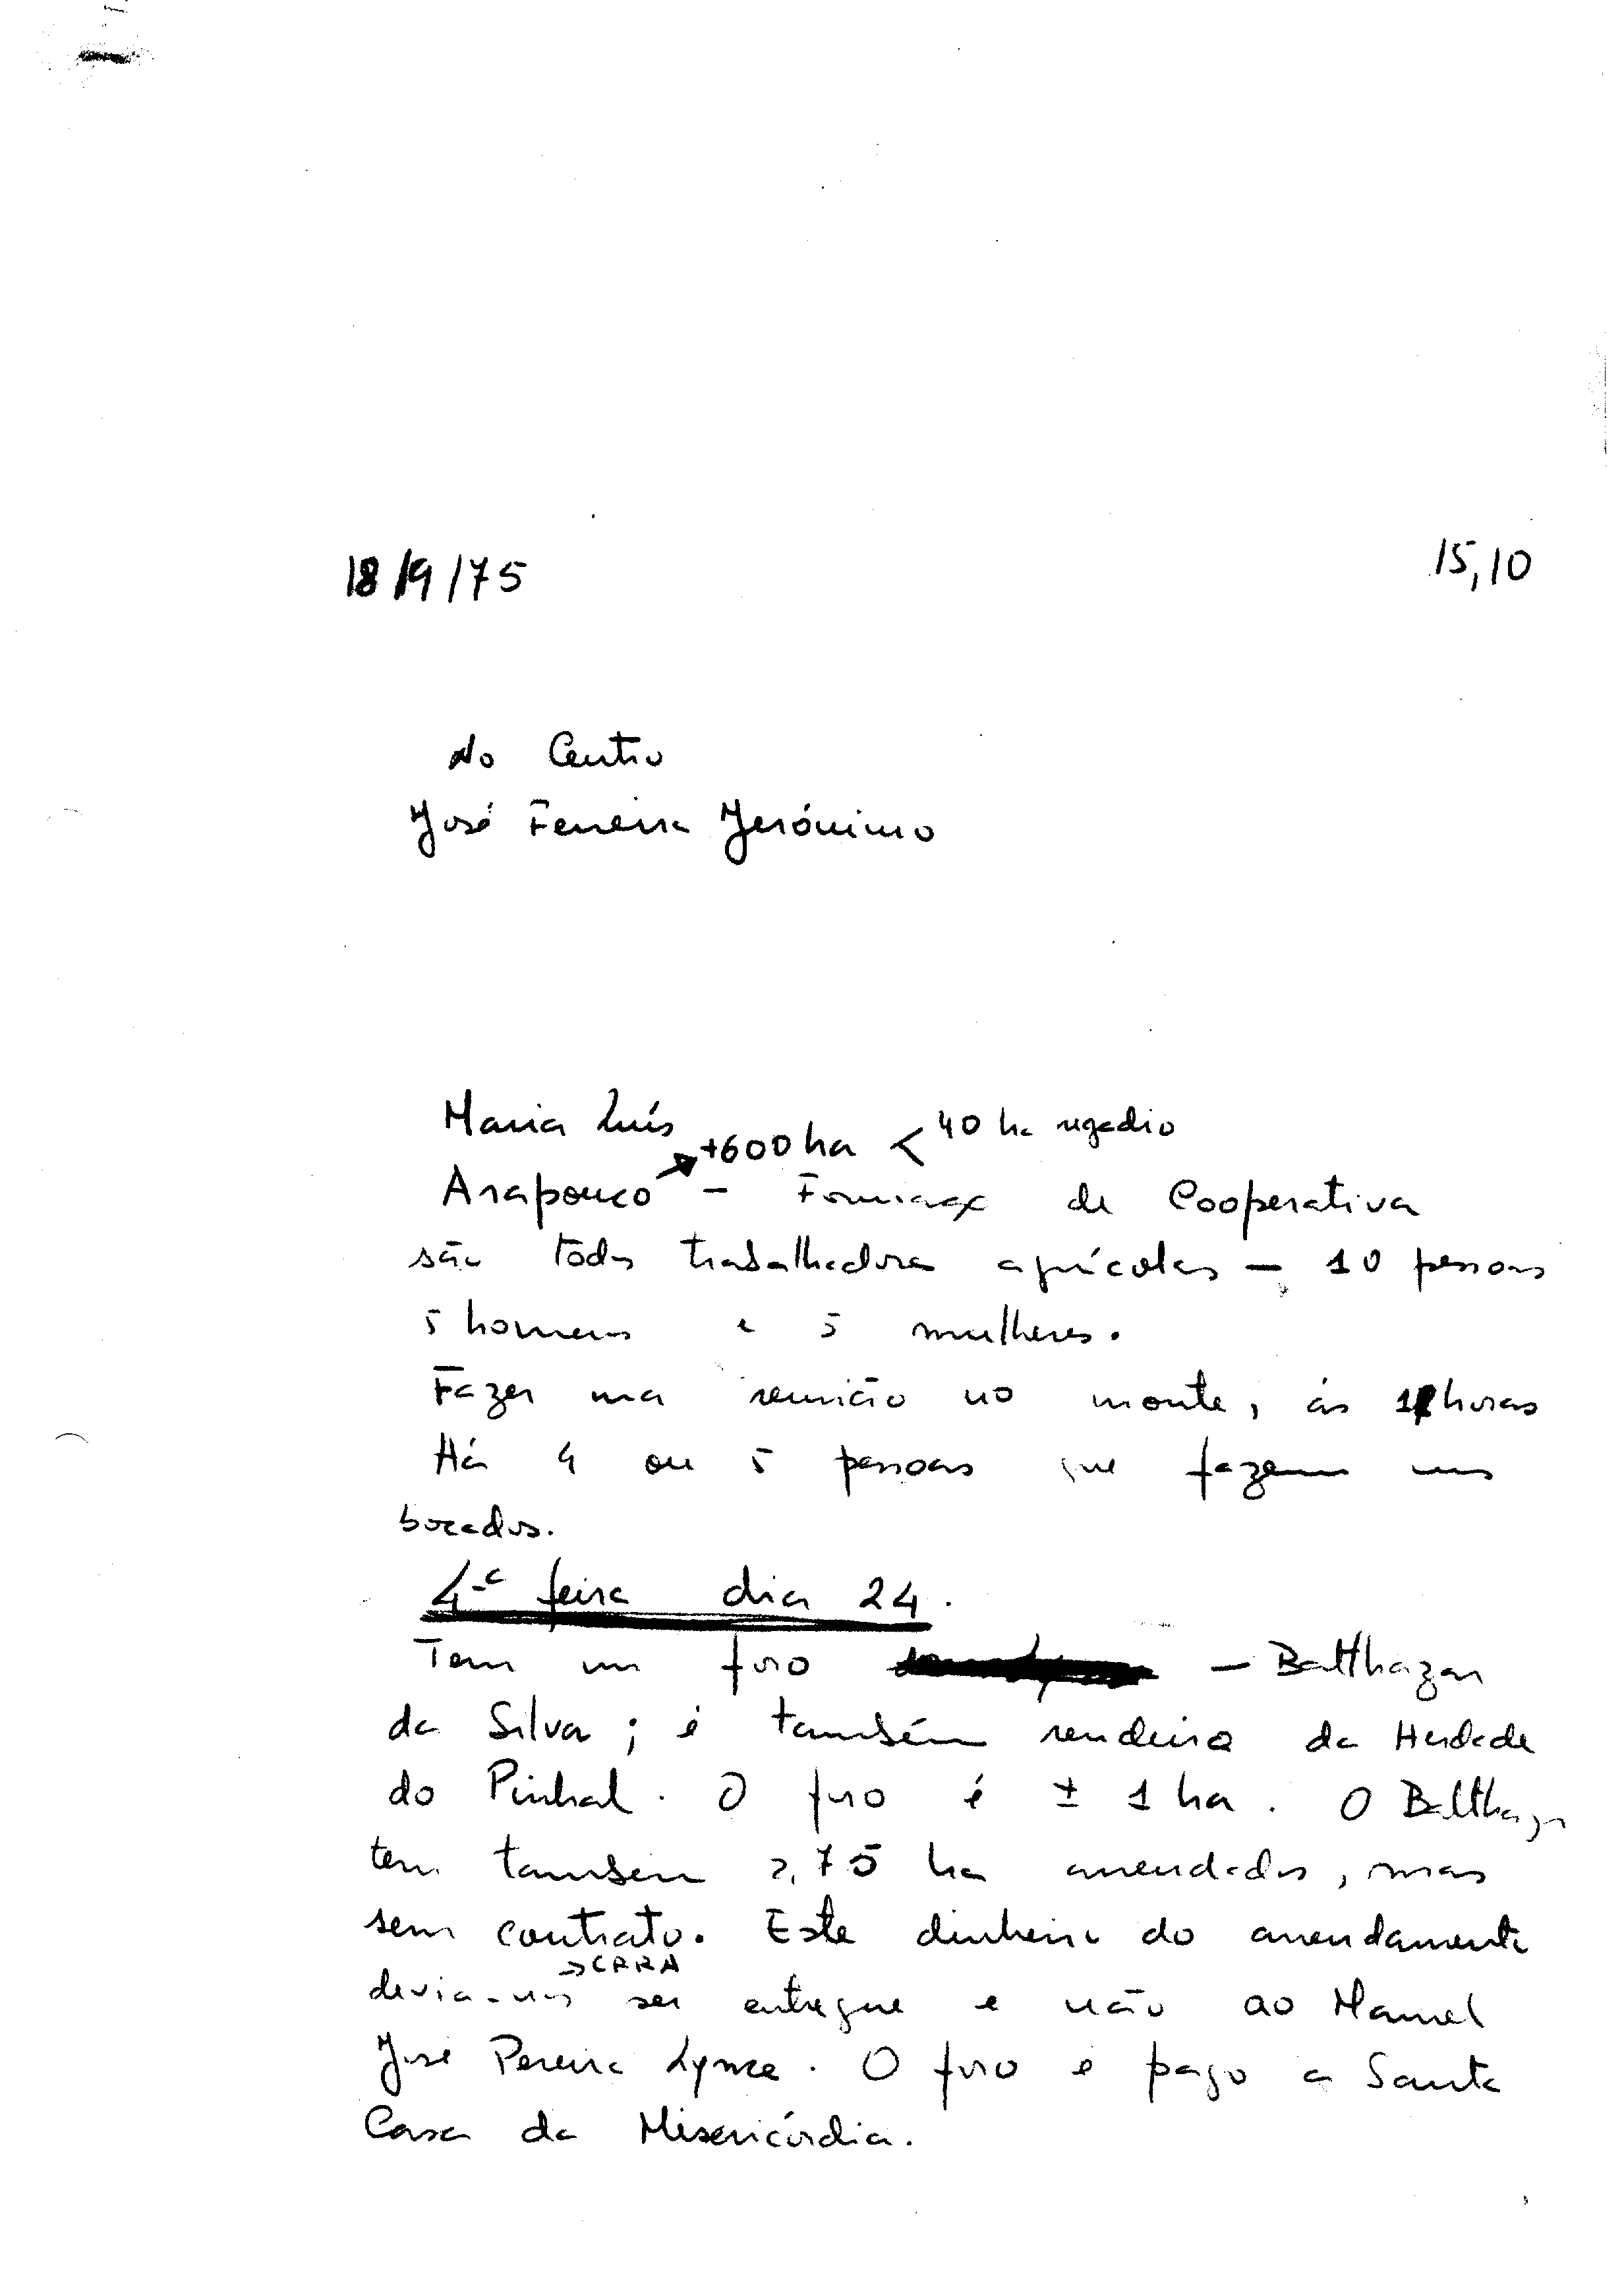 18/9/75 15,10
No Centro
José Ferreira Jerónimo
Maria Luís
+600 ha < 40 ha regadio
Arapouco - Formaçõ de Cooperativa
são todos trabalhadores agrícolas - 10 pessoas
5 homens e 5 mulheres.
Fazer uma reunião no monte, ás horas
Há 4 ou 5 pessoas que fazem uns
bocados.
4ª feira dia 24.
Tem um foro - Balthazar
da Silva ; é também rendeiro da Herdade
do Pinhal. O foro é ± 1 ha. O Balthazar
tem tambem 2,75 ha arrendados, mas
sem contrato. Este dinheiro do arrendamento
→ CRRA
devia-nos ser entregue e não ao Manuel
José Pereira Lynce. O foro é pago a Santa
Casa da Misericórdia.